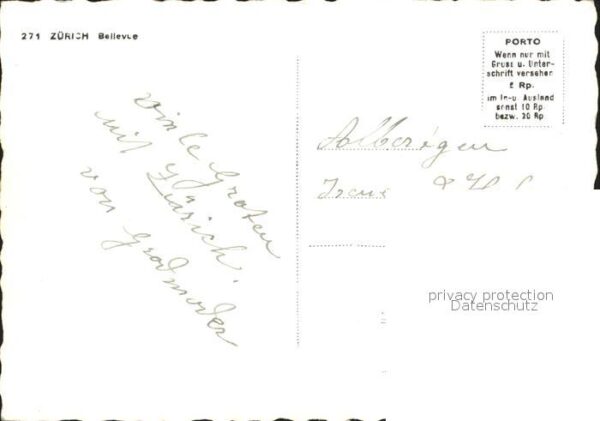 271 ZÜRICH Bellevue
PORTO
Wenn nur mit
Gruss u. Unter-
schrift versehen
5 Rp.
im In-u. Ausland
sonst 10 Rp.
bezw. 20 Rp.
viele Graten
mit Zürich.
von Grodmoder
Irene
privacy protection
Datenschutz